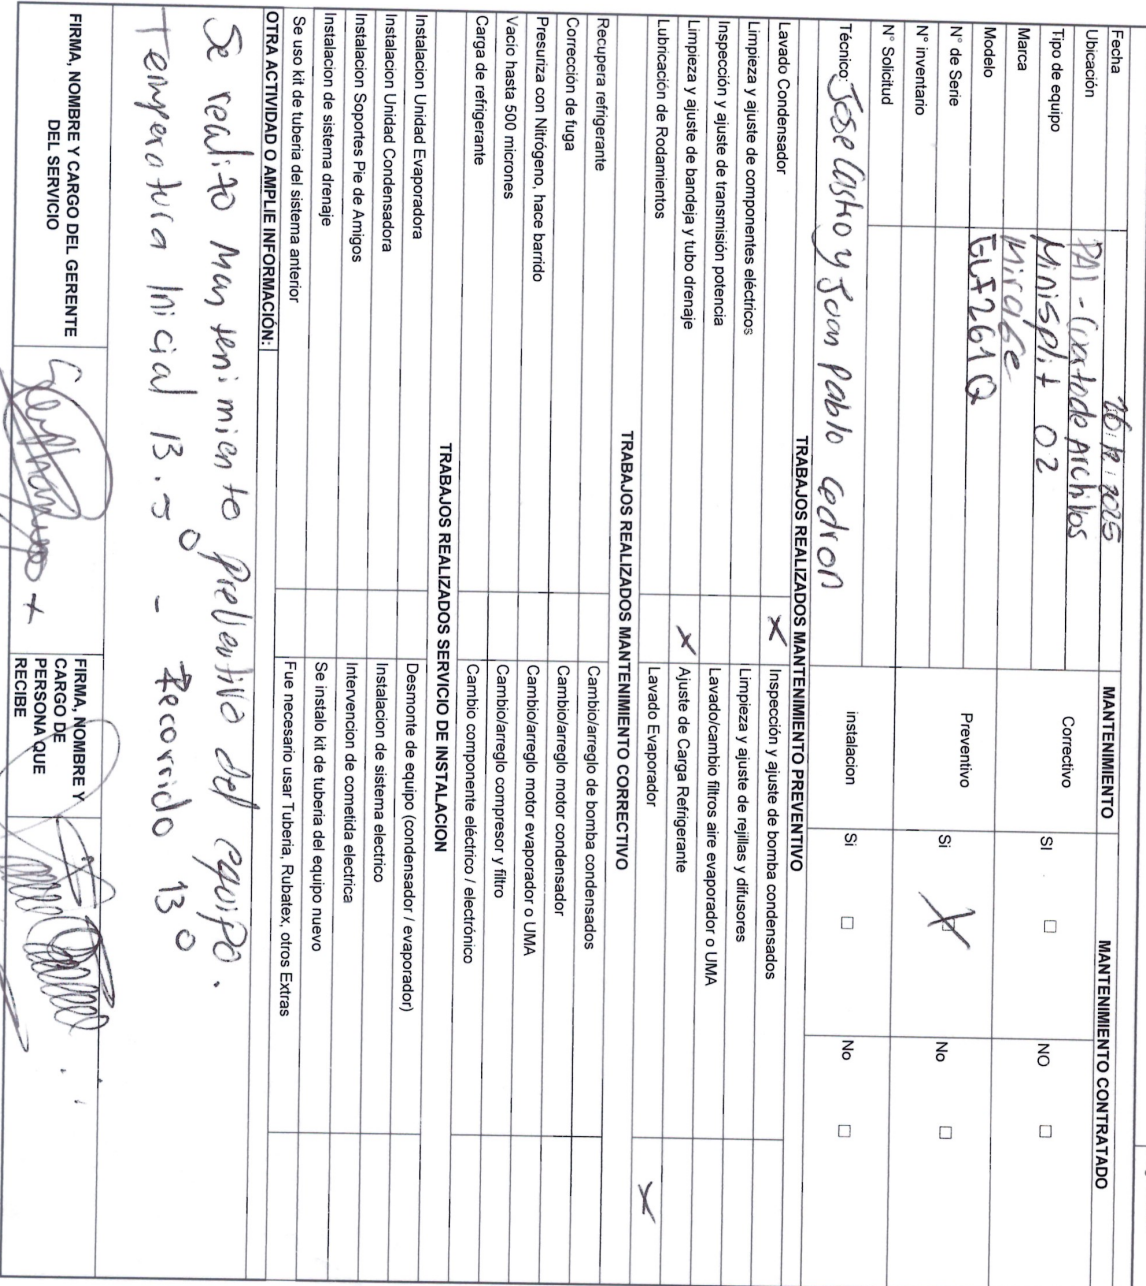 Fecha 26·12·2025 MANTENIMIENTO MANTENIMIENTO CONTRATADO
Ubicación PAI - Cuarto de Archivos
Tipo de equipo Minisplit 02 Correctivo SI □ NO □
Marca Mirage
Modelo ELF261Q
N° de Serie Preventivo Si X No □
N° inventario
N° Solicitud
Técnico: Jose Castro y Juan Pablo Cedron instalacion Si □ No □
TRABAJOS REALIZADOS MANTENIMIENTO PREVENTIVO
Lavado Condensador X Inspección y ajuste de bomba condensados
Limpieza y ajuste de componentes eléctricos Limpieza y ajuste de rejillas y difusores
Inspección y ajuste de transmisión potencia Lavado/cambio filtros aire evaporador o UMA
Limpieza y ajuste de bandeja y tubo drenaje X Ajuste de Carga Refrigerante
Lubricación de Rodamientos Lavado Evaporador X
TRABAJOS REALIZADOS MANTENIMIENTO CORRECTIVO
Recupera refrigerante Cambio/arreglo de bomba condensados
Corrección de fuga Cambio/arreglo motor condensador
Presuriza con Nitrógeno, hace barrido Cambio/arreglo motor evaporador o UMA
Vacio hasta 500 micrones Cambio/arreglo compresor y filtro
Carga de refrigerante Cambio componente eléctrico / electrónico
TRABAJOS REALIZADOS SERVICIO DE INSTALACION
Instalacion Unidad Evaporadora Desmonte de equipo (condensador / evaporador)
Instalacion Unidad Condensadora Instalacion de sistema electrico
Instalacion Soportes Pie de Amigos Intervencion de cometida electrica
Instalacion de sistema drenaje Se instalo kit de tuberia del equipo nuevo
Se uso kit de tuberia del sistema anterior Fue necesario usar Tuberia, Rubatex, otros Extras
OTRA ACTIVIDAD O AMPLIE INFORMACIÓN:
Se realizo mantenimiento preventivo del equipo.
Temperatura Inicial 13.5° - Recorrido 13°
FIRMA, NOMBRE Y CARGO DEL GERENTE
DEL SERVICIO
FIRMA, NOMBRE Y
CARGO DE
PERSONA QUE
RECIBE